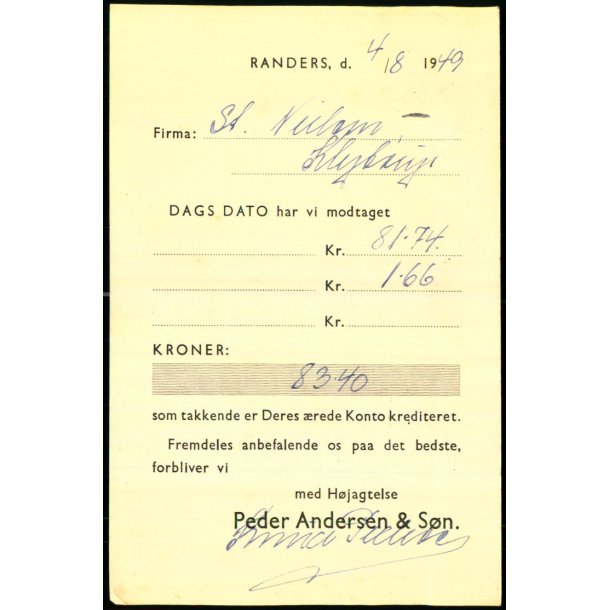 RANDERS, d. 4/8 1949
Firma: St. Nielsen –
DAGS DATO har vi modtaget
Kr. 81.74.
Kr. 1.66
Kr.
KRONER:
83.40
som takkende er Deres ærede Konto krediteret.
Fremdeles anbefalende os paa det bedste,
forbliver vi
med Højagtelse
Peder Andersen & Søn.